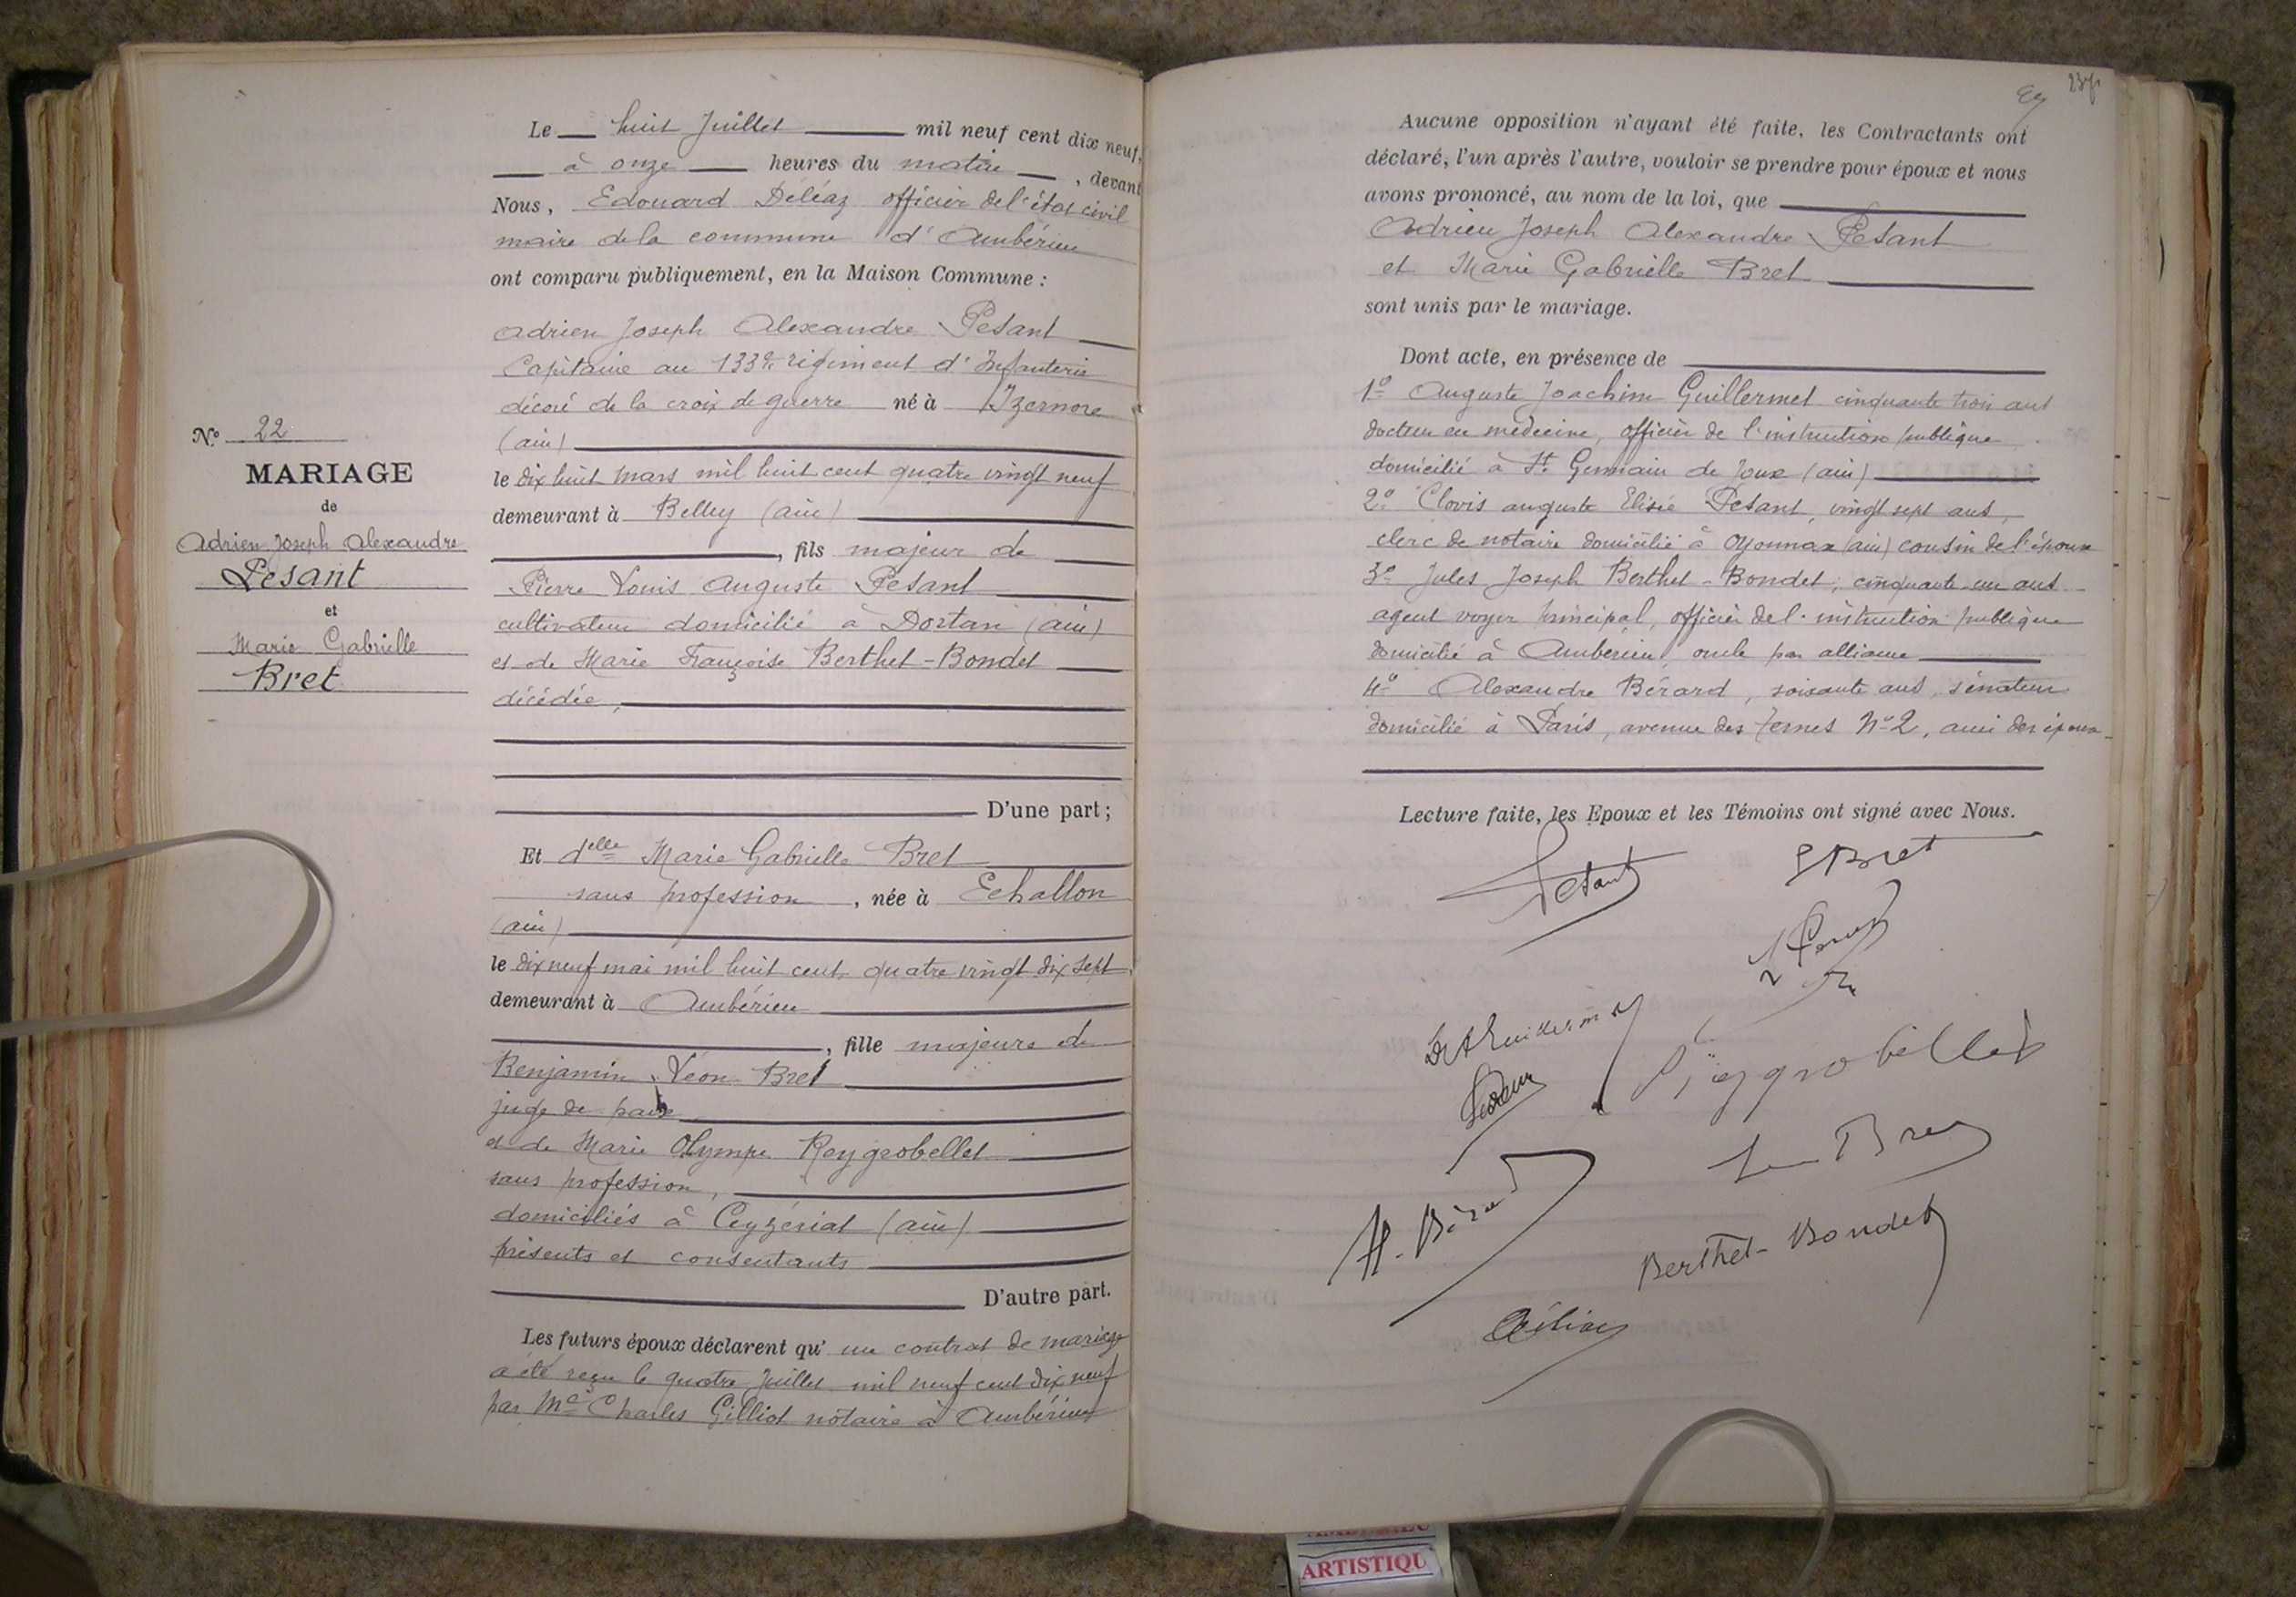 Le huit Juillet mil neuf cent dix neuf,
à onze heures du matin, devant
Nous, Edouard Déléaz officier de l'état civil
maire de la commune d'Ambérieu
ont comparu publiquement, en la Maison Commune :
Adrien Joseph Alexandre Pesant
Capitaine au 133e régiment d'Infanterie
décoré de la croix de guerre né à Izernore
(ain)
le dix huit mars mil huit cent quatre vingt neuf
demeurant à Belley (ain)
, fils majeur de
Pierre Louis Auguste Pesant
cultivateur domicilié à Dortan (ain)
et de Marie Françoise Berthet-Bondet
décédée,
D'une part ;
Et delle Marie Gabrielle Bret
sans profession, née à Echallon
(ain)
le dix neuf mai mil huit cent quatre vingt dix sept
demeurant à Ambérieu
, fille majeure de
Benjamin Léon Bret
juge de paix
et de Marie Olympe Reygrobellet
sans profession,
domiciliés à Ceyzériat (ain)
présents et consentants
D'autre part.
Les futurs époux déclarent qu'un contrat de mariage
a été reçu le quatre Juillet mil neuf cent dix neuf
par Me Charles Gilliot notaire à Ambérieu
No 22
MARIAGE
de
Adrien Joseph Alexandre
Pesant
et
Marie Gabrielle
Bret
237
Aucune opposition n'ayant été faite, les Contractants ont
déclaré, l'un après l'autre, vouloir se prendre pour époux et nous
avons prononcé, au nom de la loi, que
Adrien Joseph Alexandre Pesant
et Marie Gabrielle Bret
sont unis par le mariage.
Dont acte, en présence de
1o Auguste Joachim Guillermet cinquante trois ans
docteur en médecine, officier de l'instruction publique
domicilié à St Germain de Joux (ain)
2o Clovis auguste Elisée Pesant, vingt sept ans,
clerc de notaire domicilié à Oyonnax (ain) cousin de l'époux
3o Jules Joseph Berthet-Bondet, cinquante un ans
agent voyer principal, officier de l'instruction publique
domicilié à Ambérieu, oncle par alliance
4o Alexandre Bérard, soixante ans, sénateur
domicilié à Paris, avenue des Ternes No 2, ami des époux
Lecture faite, les Epoux et les Témoins ont signé avec Nous.
Pesant
Bret
Dr A Guillermet
Reygrobellet
Bret
A. Bérard
Berthet-Bondet
Déléaz
ARTISTIQU